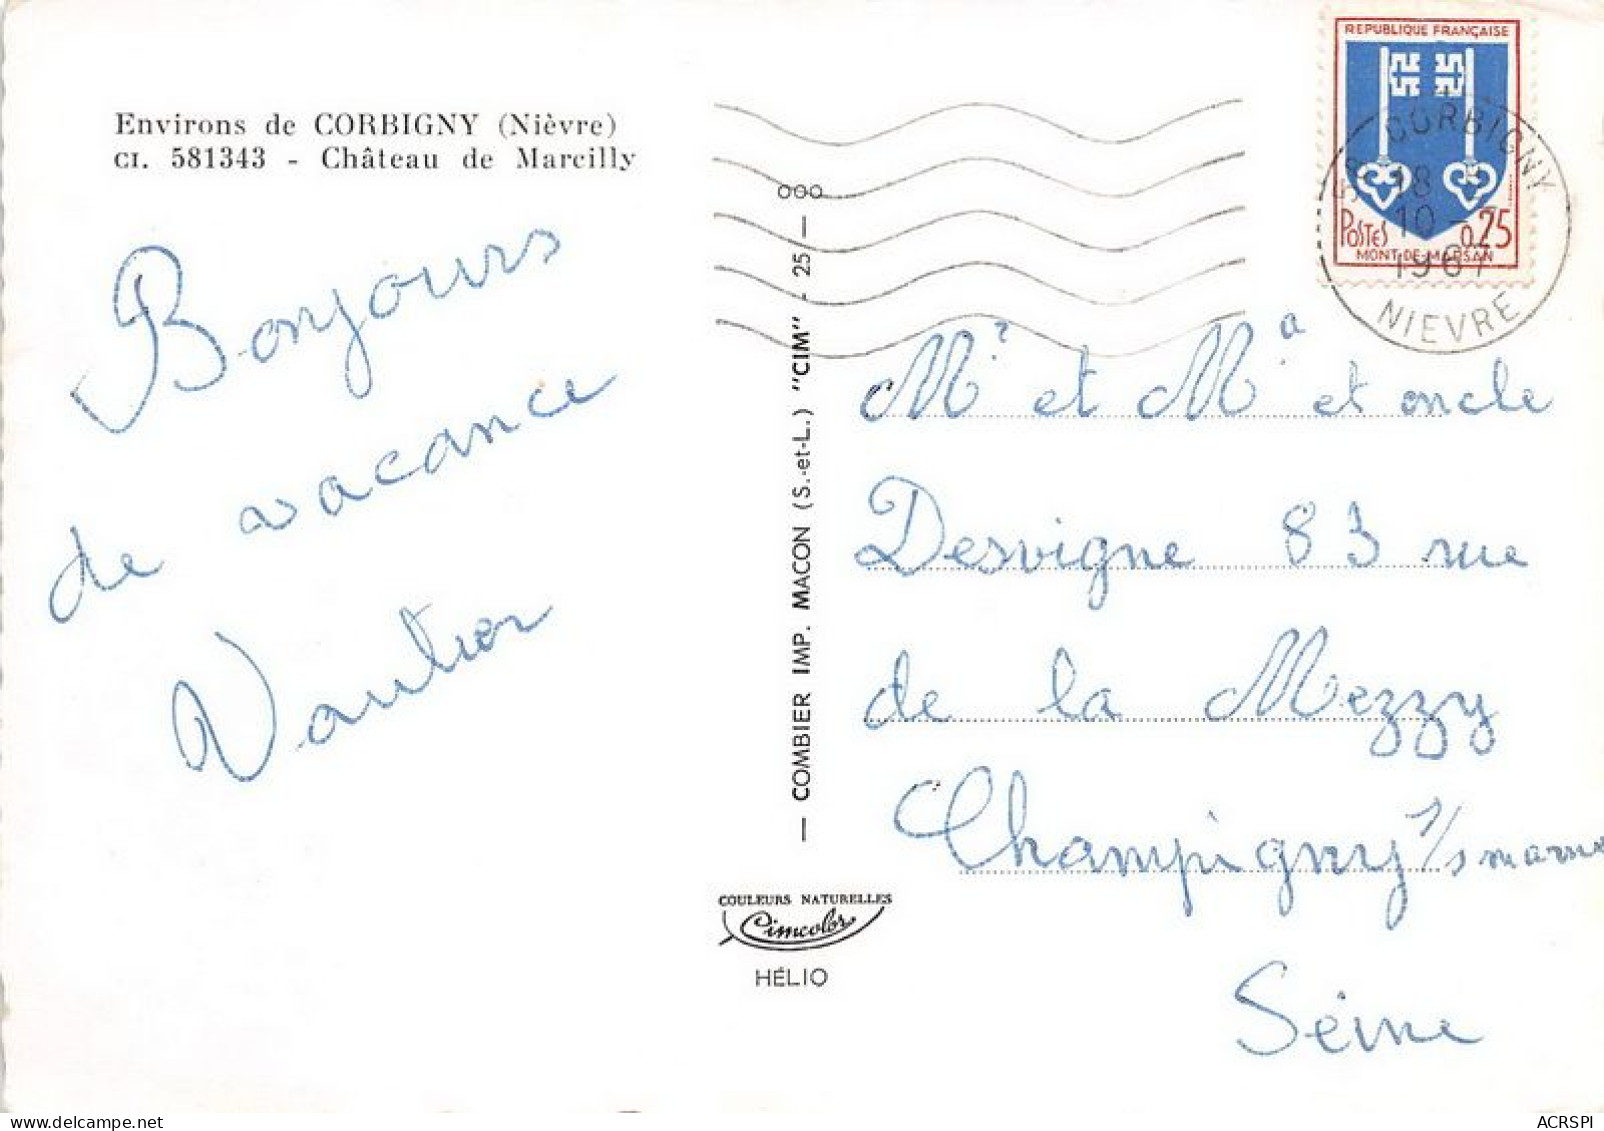 Environs de CORBIGNY (Nièvre)
CI. 581343 - Château de Marcilly
Bonjours
de vacance
Vautier
— COMBIER IMP. MACON (S.-et-L.) "CIM" - 25 — 000
COULEURS NATURELLES
Cimcolor
HÉLIO
REPUBLIQUE FRANÇAISE
POSTES 0,25
MONT-DE-MARSAN
CORBIGNY
18 H
10 - 7
1967
NIEVRE
Mr et Ma et oncle
Desvigne 83 rue
de la Mezzy
Champigny s/s marne
Séine
ACRSPI